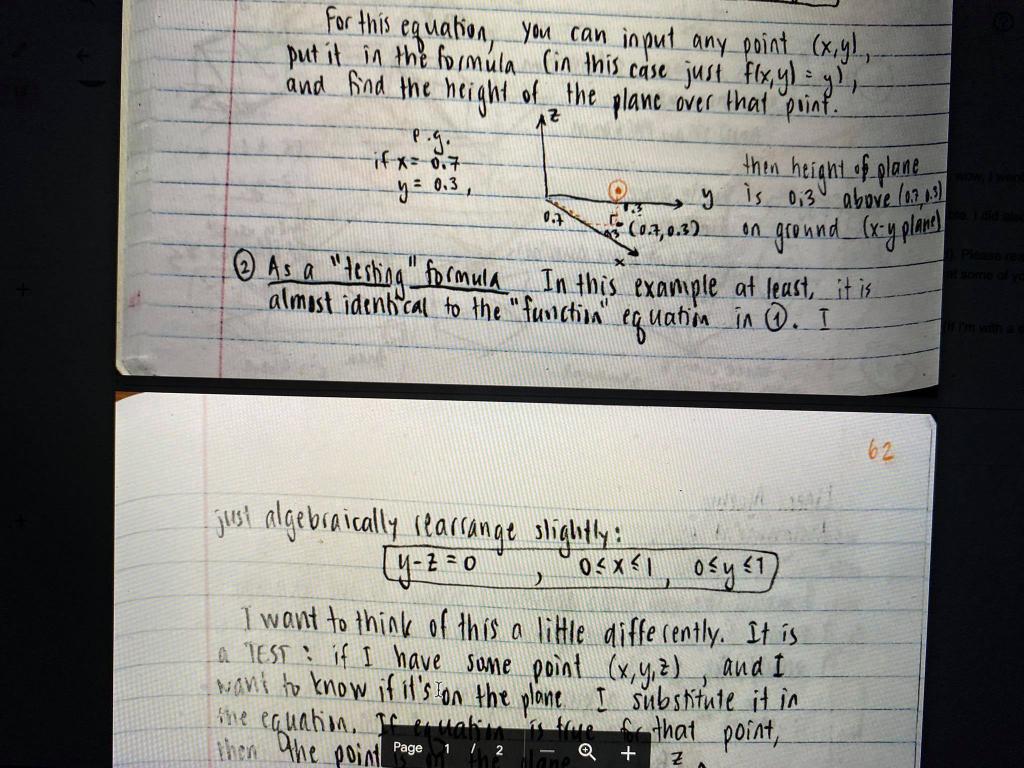 For this equation, you can input any point (x,y),
put it in the formula (in this case just f(x,y) = y),
and find the height of the plane over that point.
e.g.
if x = 0.7
y = 0.3,
z
y
0.7
0.3
(0.7, 0.3)
x
then height of plane
is 0.3 above (0.7, 0.3)
on ground (x-y plane)
② As a "testing" formula In this example at least, it is
almost identical to the "function" equation in ①. I
62
just algebraically rearrange slightly:
y-z=0 , 0≤x≤1, 0≤y≤1
I want to think of this a little differently. It is
a TEST: if I have some point (x,y,z), and I
want to know if it's on the plane I substitute it in
the equation. If equation is true for that point,
then the point is on the plane
z
Page 1 / 2